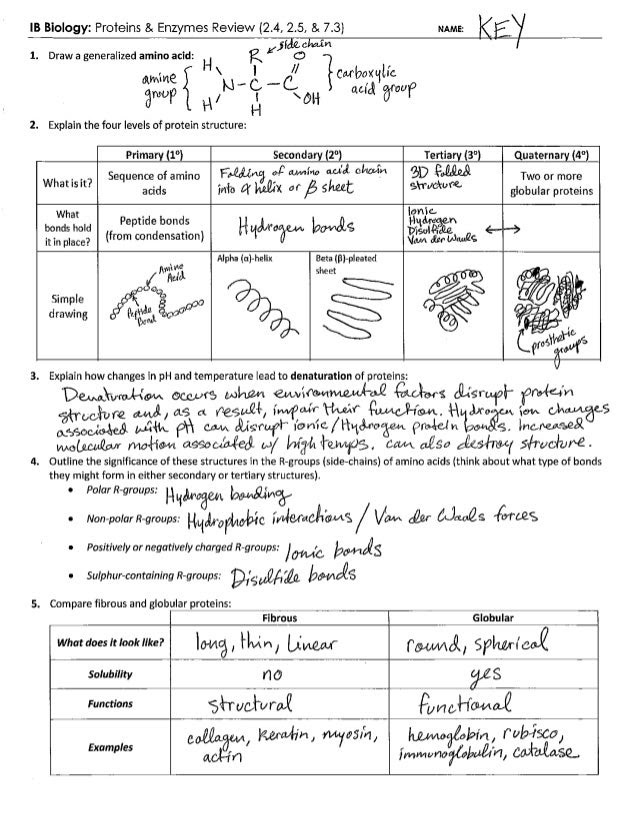 IB Biology: Proteins & Enzymes Review (2.4, 2.5, & 7.3)
NAME: KEY
1. Draw a generalized amino acid:
R side chain
H O
amine group
N-C-C
carboxylic acid group
H H OH
2. Explain the four levels of protein structure:
Primary (1°) Secondary (2°) Tertiary (3°) Quaternary (4°)
What is it?
Sequence of amino acids
Folding of amino acid chain into α helix or β sheet
3D folded structure
Two or more globular proteins
What bonds hold it in place?
Peptide bonds (from condensation)
Hydrogen bonds
Ionic
Hydrogen
Disulfide
Van der Waals
Simple drawing
Amino Acid
Peptide Bond
Alpha (α)-helix
Beta (β)-pleated sheet
prosthetic groups
3. Explain how changes in pH and temperature lead to denaturation of proteins:
Denaturation occurs when environmental factors disrupt protein
structure and, as a result, impair their function. Hydrogen ion changes
associated with pH can disrupt ionic/Hydrogen protein bonds. Increased
molecular motion associated w/ high temps. can also destroy structure.
4. Outline the significance of these structures in the R-groups (side-chains) of amino acids (think about what type of bonds
they might form in either secondary or tertiary structures).
• Polar R-groups: Hydrogen bonding
• Non-polar R-groups: Hydrophobic interactions / Van der Waals forces
• Positively or negatively charged R-groups: Ionic bonds
• Sulphur-containing R-groups: Disulfide bonds
5. Compare fibrous and globular proteins:
Fibrous Globular
What does it look like? long, thin, Linear round, spherical
Solubility no yes
Functions structural functional
Examples
collagen, keratin, myosin,
actin
hemoglobin, rubisco,
immunoglobulin, catalase